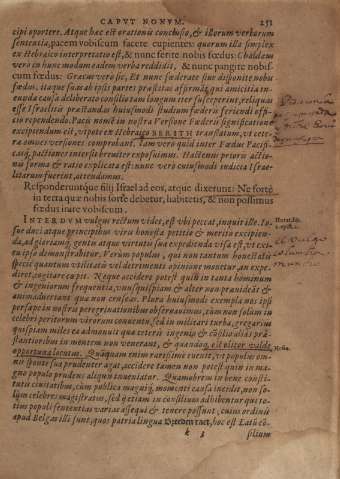 CAPVT NONVM. 251
cipi oportere. Atque hæc est orationis conclusio, & illorum verborum
sententia, pacem vobiscum facere cupientes: quorum illa simplex
ex Hebraico interpretatio est, & nunc ferite nobis fœdus: Chaldæum
vero in hunc modum eadem verba reddidit, & nunc pangite nobis-
cum fœdus: Græcus vero sic, Et nunc fœderate siue disponite nobis
fœdus, itaque suas ab istis partes præsitas affirmat, qui amicitiæ in-
eundæ causa deliberato consilio tam longum iter susceperint, reliquum
esse Israelitis præstandi huiusmodi studium fœderis feriendi offi-
cio rependendo. Pacis nomē in nostra Versione Fœderis significatione
excipiendum est, vtpote ex Hebraico BERITH translatum, vt cæte-
ra omnes versiones comprobant. Iam vero quid inter Fœdus Pacis-
q́;, pactiones intersit breuiter exposuimus. Hactenus prioris actio-
nis forma & ratio explicata est: nunc vero cuiusmodi sedicia Israe-
litarum fuerint, attendendum.
Responderuntque filij Israel ad eos, atque dixerunt: Ne forte
in terra quæ nobis sorte debetur, habitetis, & non possimus
fœdus inire vobiscum.
INTERDVM vulgus rectum videt, est vbi peccat, inquit ille. Io-
sue duci atque principibus viris honesta petitio & meritis excipien-
da, ad gloriamq́; gentis atque virtutis suæ expedienda visa est, vt ex
eu ipsa demonstrabitur. Verùm populus, qui non tantum honestatis
speciē quantum vtilitatis vel detrimenti opinione mouetur, an expe-
diret, cogitare cœpit. Neque accedere potest quin in tanta hominum
& ingeniorum frequentia, vnus quispiam & alter non præuideat &
animaduertat quæ non censeas. Plura huiusmodi exempla nos ipsi
persæpe in nostris peregrinationibus obseruauimus, cùm non solum in
celebri peritorum virorum conuentu, sed in militari turba, gregarius
quispiam miles ea admonuit quæ cæteris ingenio & cōsilio aliàs præ-
stantioribus in mentem non venerant, & quandoq́; est olitor valde
opportuna locutus. Quāquam enim rarissimè euenit, vt populus om-
nis sponte sua prudenter agat, accidere tamen non potest quin in ma-
gno populo prudens aliquis inueniatur. Quamobrem in bene consti-
tutis ciuitatibus, cùm publica magniq́; momenti causa incidit, non so-
lùm celebres magistratus, sed etiam in consilium adhibentur qui to-
tius populi sententias varias assequi & tenere possunt, cuius ordinis
apud Belgas illi sunt, quos patria lingua Breden raet, hoc est Latū cō-
k 3 silium
Horat. lib.
Nota.